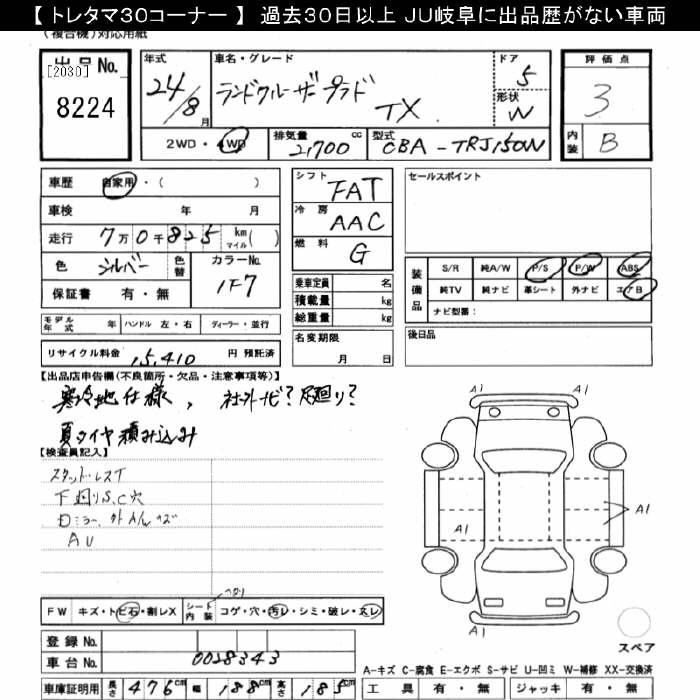 【トレタマ30コーナー】 過去30日以上 JU岐阜に出品歴がない車両
(複合機)対応用紙
出品No.
[2030]
8224
年式
24/8月
車名・グレード
ランドクルーザープラド TX
ドア
5
形状
W
評価点
3
内装
B
2WD・4WD
排気量
2,700cc
型式
CBA-TRJ150W
車歴 自家用・( )
車検 年 月
走行 7万0千825 km マイル( )
色 シルバー 色替
カラーNo.
1F7
保証書 有・無
シフト FAT
冷房 AAC
燃料 G
乗車定員 名
積載量 kg
総重量 kg
セールスポイント
装備品 S/R 純A/W P/S P/W ABS
純TV 純ナビ 革シート 外ナビ エアB
ナビ型番:
モデル年式 年 ハンドル 左・右 ディーラー・並行
名変期限
月 日
後日品
リサイクル料金 15,410 円 預託済
【出品店申告欄(不良箇所・欠品・注意事項等)】
寒冷地仕様、社外ナビ?足廻り?
夏タイヤ積み込み
【検査員記入】
スタッドレスT
下廻りS、C穴
AU
A1 A1
A1
A1
A1
ヘタリ
FW キズ・トビ石・割レX シート内装 コゲ・穴・汚レ・シミ・破レ・スレ
登録No.
車台No. 0028343
スペア
A-キズ C-腐食 E-エクボ S-サビ U-凹ミ W-補修 XX-交換済
車庫証明用 長さ 476cm 幅 188cm 高さ 185cm
工具 有・無 ジャッキ 有・無